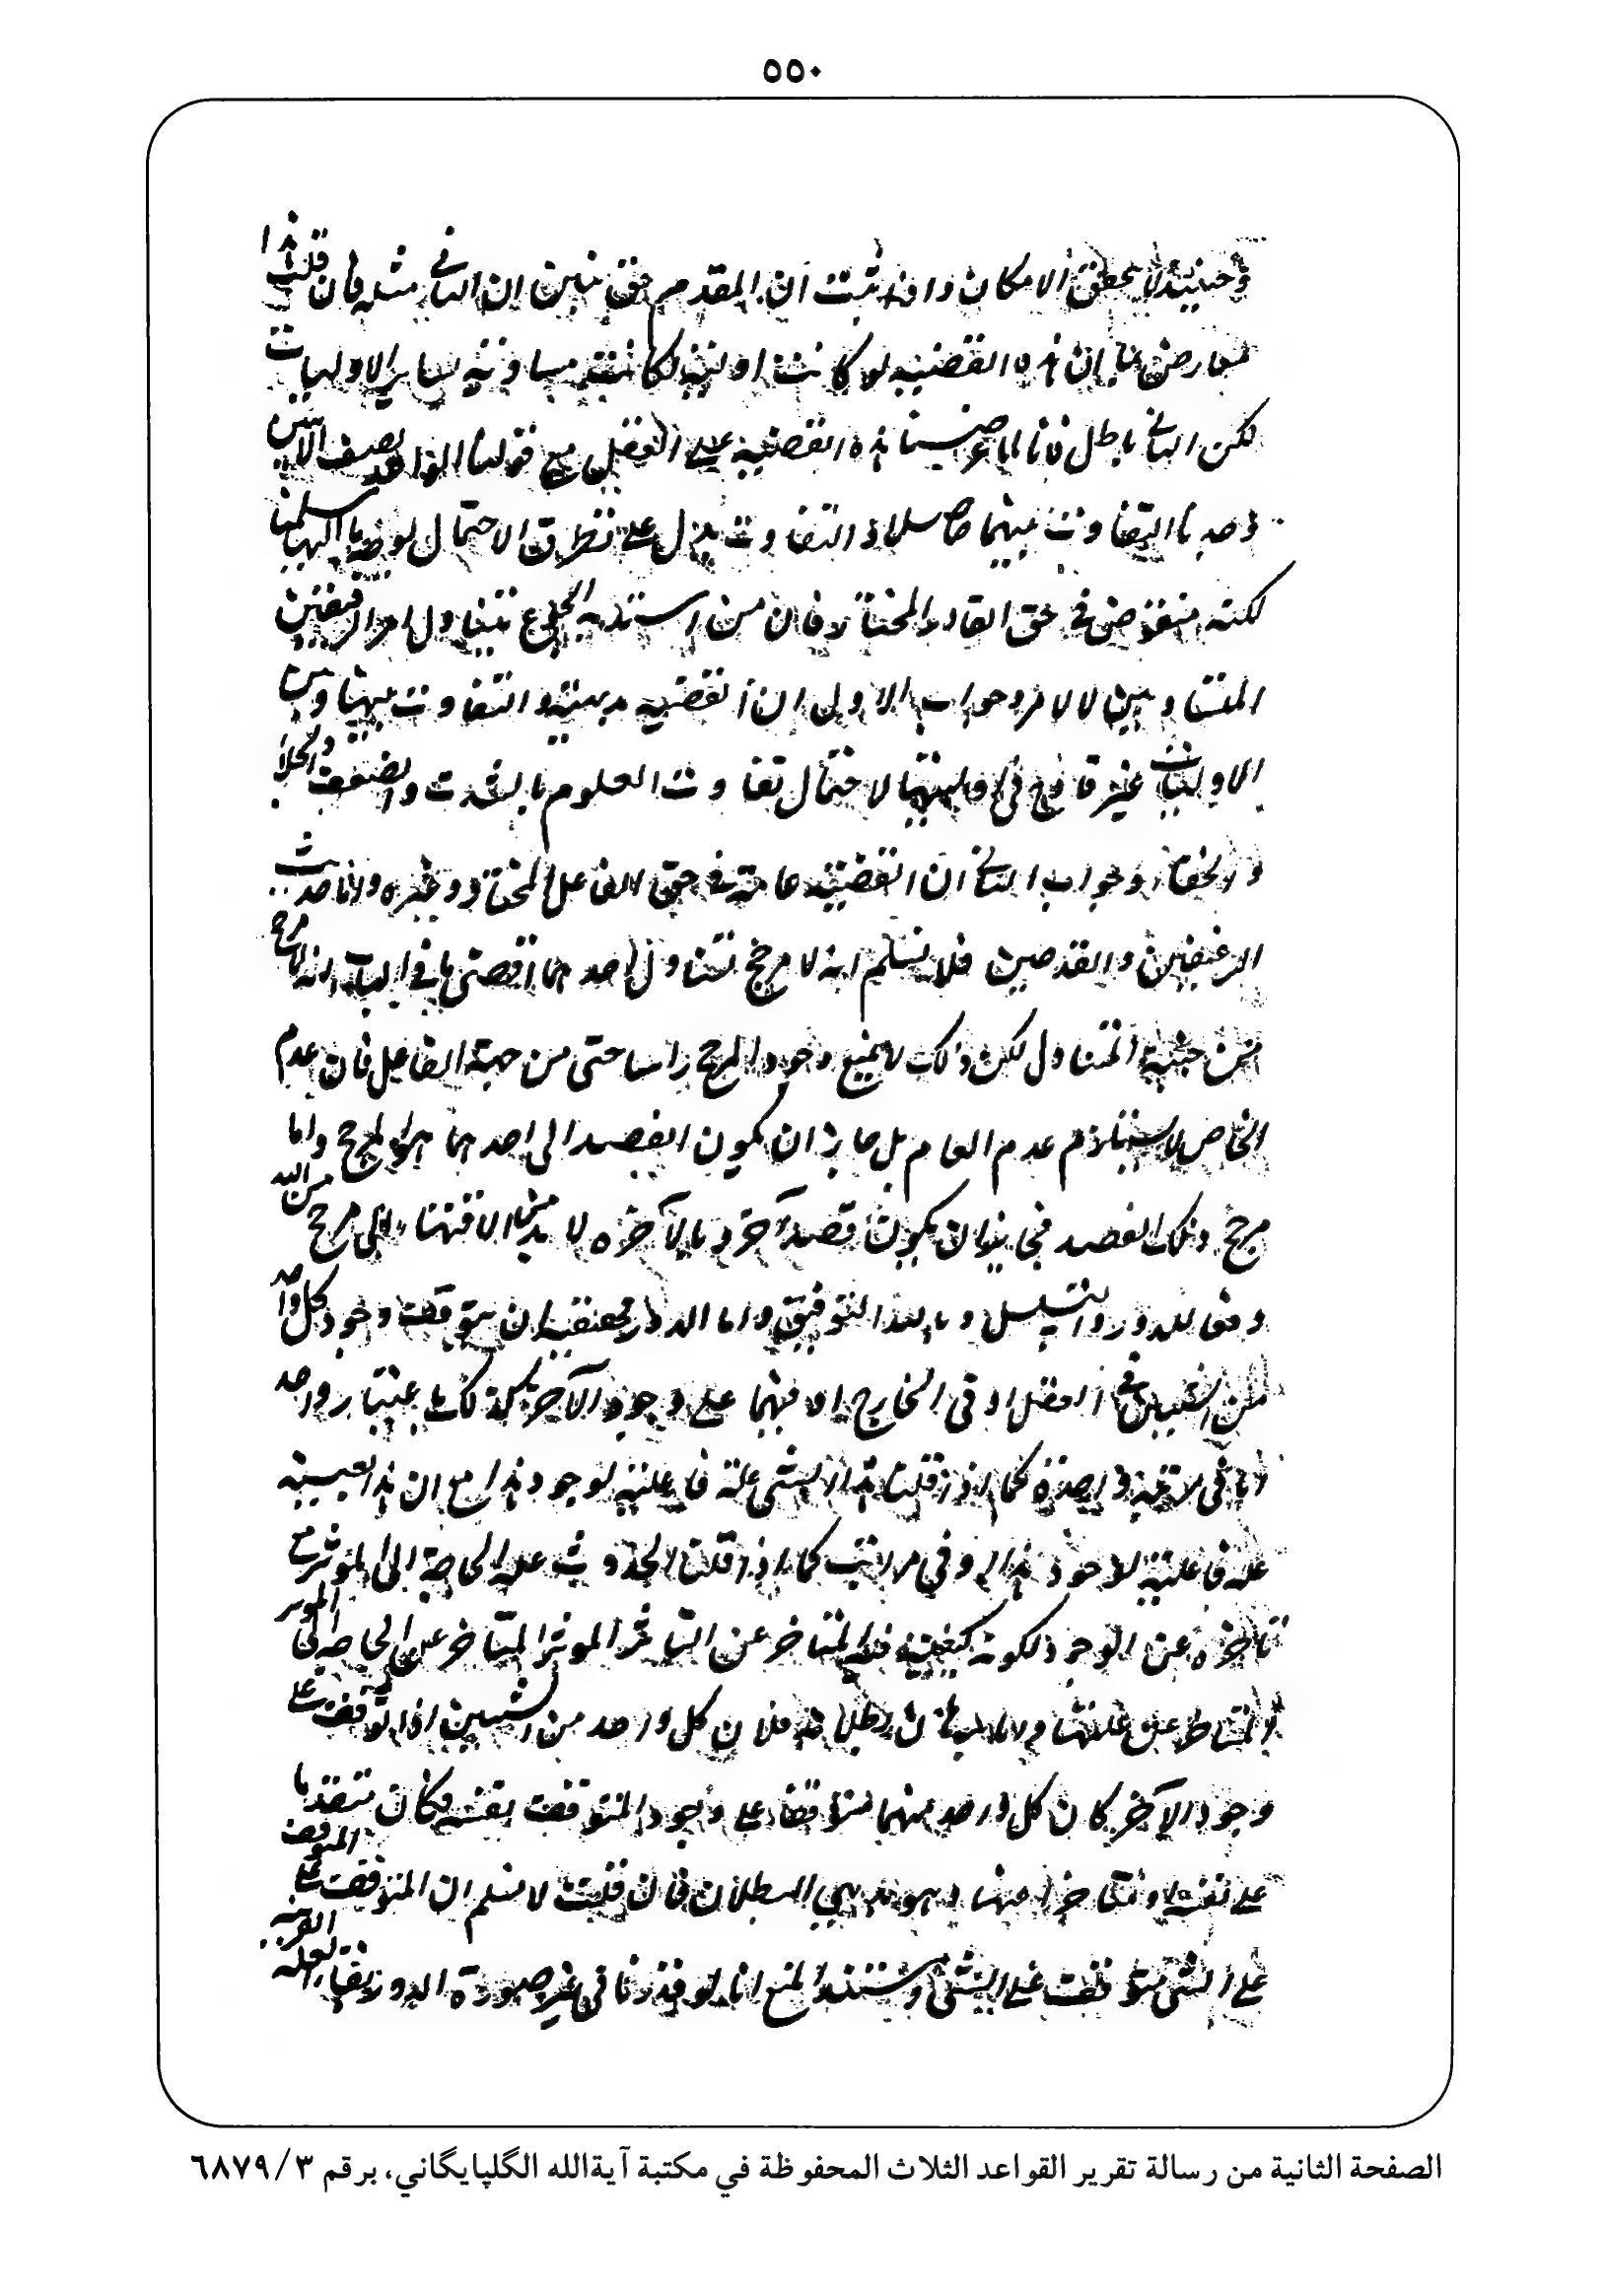 ٥٥٠
وحينئذ لا يحقق الامكان واذا ثبت ان المقدم حق تبين ان التالي مثله فان قلت هذا
معارض بان هذه القضيه لو كانت اوليه لكانت مساويه لساير الاوليات
لكن التالي باطل فانا لما عرضنا هذه القضيه على العقل مع قولنا الواحد نصف الاثنين
وجدنا التفاوت بينهما حاصلا اذ التفاوت يدل على تطرق الاحتمال لوجه ما اليها سلمنا
لكنه منقوض في حق القادر المختار فان من اشتد به الجوع يتناول احد الرغيفين
المتساويين لا لامر وجواب الاول ان القضيه بديهيه و التفاوت بينها وبين
الاوليات غير قادح في اوليتها لاحتمال تفاوت العلوم بالشدت والضعف والجلاء
و الخفاء وجواب الثاني ان القضيه عامة في حق الفاعل المختار وغيره واما حديث
الرغيفين والقدحين فلا نسلم انه لا مرجح لتناول احدهما اقصى ما في الباب انه لا مرجح
من حيثية المتناول لكن ذلك لا يمنع وجود المرجح راسا حتى من جهة الفاعل فان عدم
الخاص لا يستلزم عدم العام بل جاز ان يكون القصد الى احدهما هو المرجح واما
مرجح ذلك القصد فيجوز ان يكون قصدا آخر و بالآخره لا بد من الانتهاء الى مرجح من الله
دفعا للدور والتسلسل و بالله التوفيق واما الدور فحقيقته ان يتوقف وجود كل واحد
من الشيئين في العقل او في الخارج او فيهما على وجود الآخر كذلك باعتبار واحد
اما في مرتبة واحدة كما اذا قلنا هذا الشى علة فاعليه لوجود هذا مع ان هذا بعينه
علة فاعليه لوجود هذا او في مراتب كما اذا قلنا الحدوث علة الحاجة الى المؤثر مع
تاخره عن الوجود لكونه كيفية له المتاخر عن تاثير الموثر المتاخر عن الحاجه الى الموثر
المتاخر عن علتها و اما بيان بطلانه فلان كل واحد من الشيئين اذا توقف على
وجود الآخر كان كل واحد منهما متوقفا على وجود المتوقف بنفسه فكان متقدما
على نفسه او متاخرا عنها و هو بديهي البطلان فان قلت لا نسلم ان المتوقف على المتوقف
على الشى متوقف على الشى و مستند المنع انا لو قدرنا في غير صورة الدور بقاء العله القريبه
الصفحة الثانية من رسالة تقرير القواعد الثلاث المحفوظة في مكتبة آيةالله الگلپايگاني، برقم ٦٨٧٩/٣